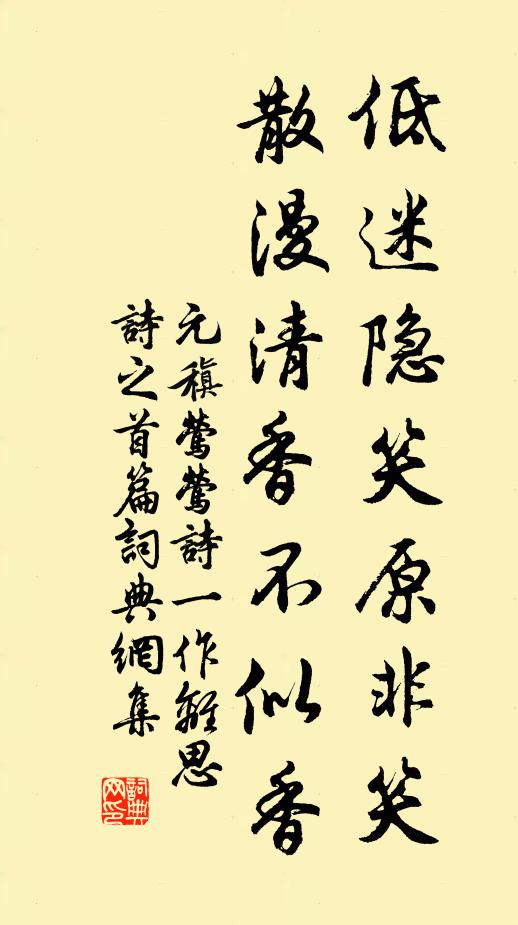 低迷隐笑原非笑
散漫清香不似香
元稹莺莺詩一作離思
詩之首篇詞典網集
詞典网印